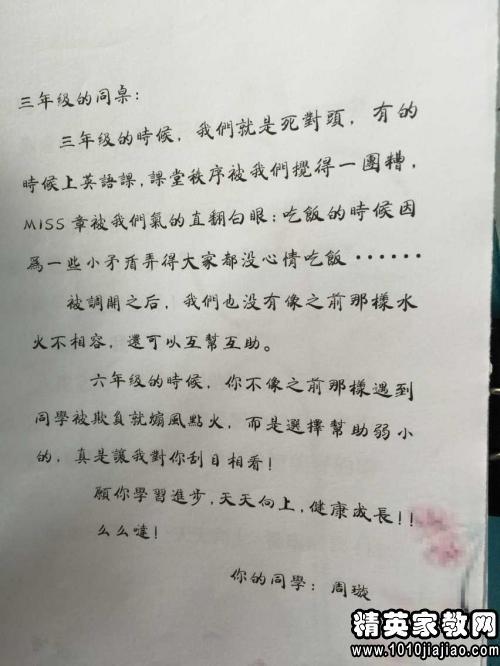 三年级的同桌：
三年级的時候，我們就是死對頭，有的
時候上英語課，課堂秩序被我們攪得一團糟，
MISS 章被我們氣的直翻白眼；吃飯的時候因
爲一些小矛盾弄得大家都没心情吃飯······
被調開之后，我們也没有像之前那樣水
火不相容，還可以互幫互助。
六年级的時候，你不像之前那樣遇到
同學被欺負就煽風點火，而是選擇幫助弱小
的，真是讓我對你刮目相看！
願你學習進步，天天向上，健康成長！！
么么噠！
你的同學：周璇
精英家教网
www.1010jiajiao.com